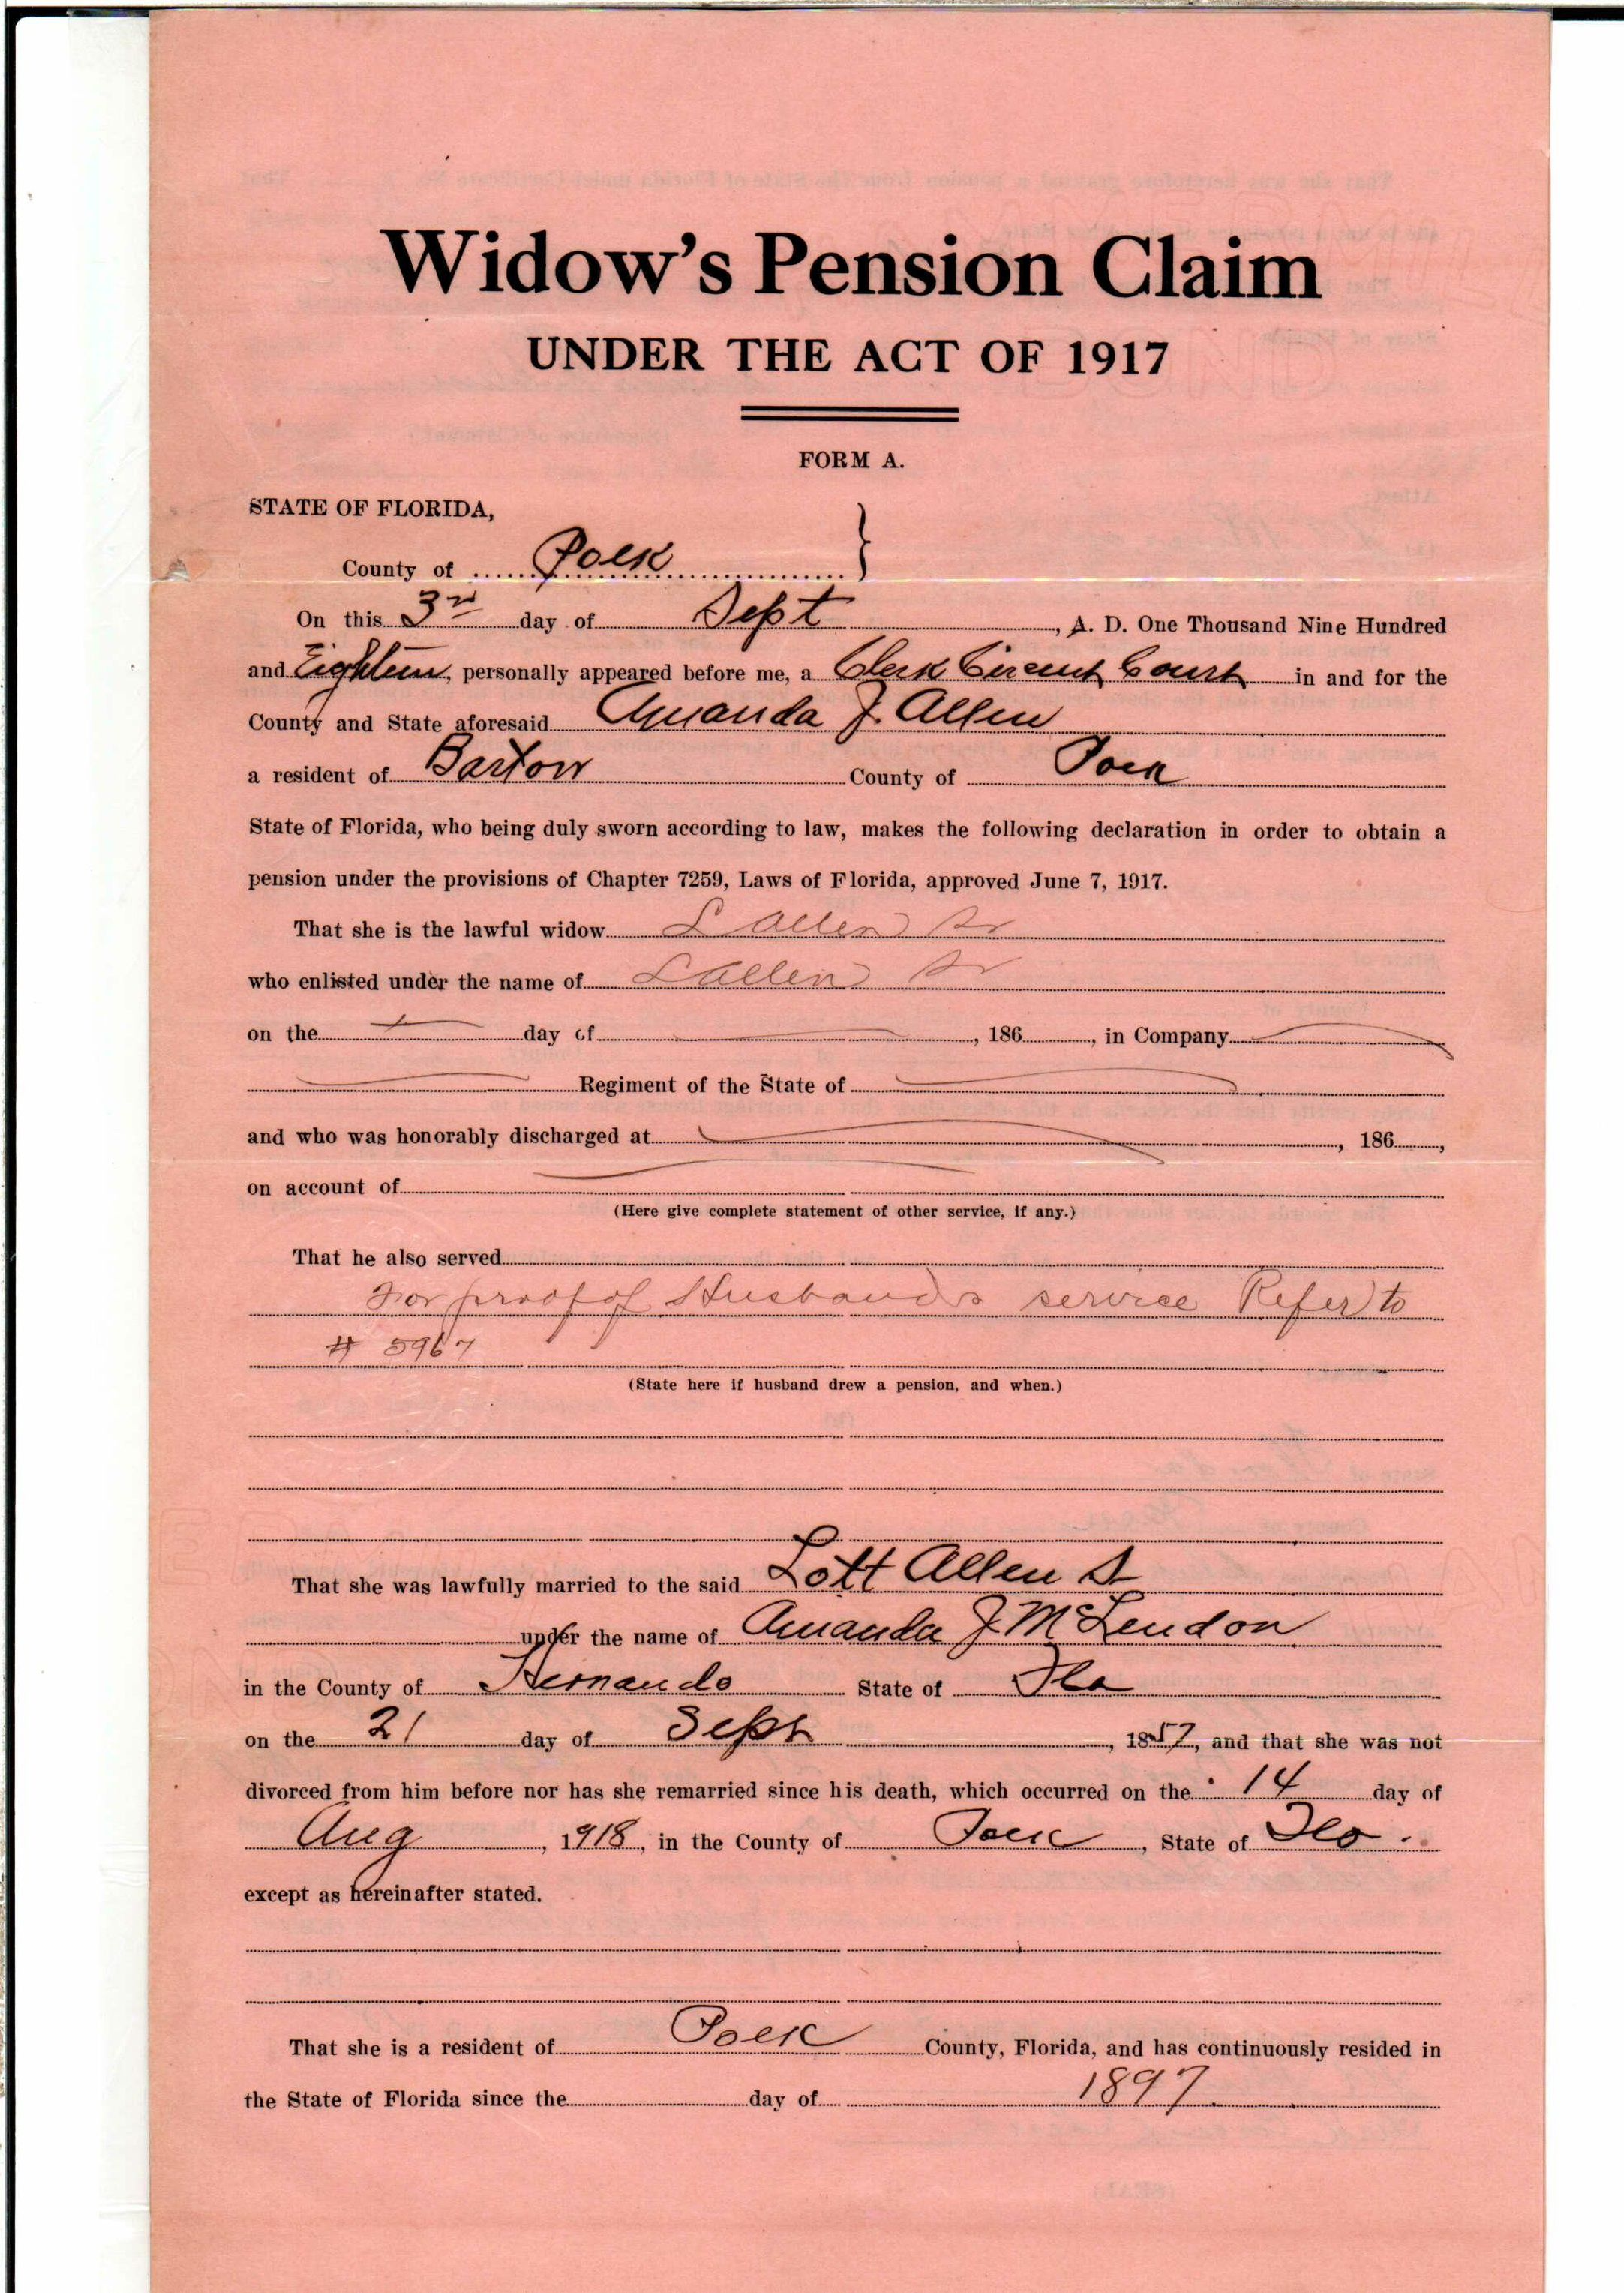 Widow's Pension Claim
UNDER THE ACT OF 1917
FORM A.
STATE OF FLORIDA,
County of Polk }
On this 3rd day of Sept, A. D. One Thousand Nine Hundred
and Eighteen, personally appeared before me, a Clerk Circuit Court in and for the
County and State aforesaid Amanda J. Allen
a resident of Bartow County of Polk
State of Florida, who being duly sworn according to law, makes the following declaration in order to obtain a
pension under the provisions of Chapter 7259, Laws of Florida, approved June 7, 1917.
That she is the lawful widow L Allen Sr
who enlisted under the name of L Allen Sr
on the day of , 186 , in Company
Regiment of the State of
and who was honorably discharged at , 186 ,
on account of
(Here give complete statement of other service, if any.)
That he also served
For proof of Husband's service Refer to
# 5967
(State here if husband drew a pension, and when.)
That she was lawfully married to the said Lott Allen Sr
under the name of Amanda J. McLendon
in the County of Hernando State of Fla
on the 21 day of Sept, 1857, and that she was not
divorced from him before nor has she remarried since his death, which occurred on the 14 day of
Aug, 1918, in the County of Polk, State of Fla.
except as hereinafter stated.
That she is a resident of Polk County, Florida, and has continuously resided in
the State of Florida since the day of 1897